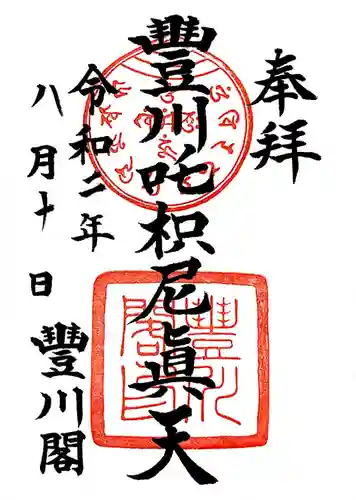 奉拝
豐川吒枳尼眞天
令和二年
八月十日
豐川閣
豐川閣印